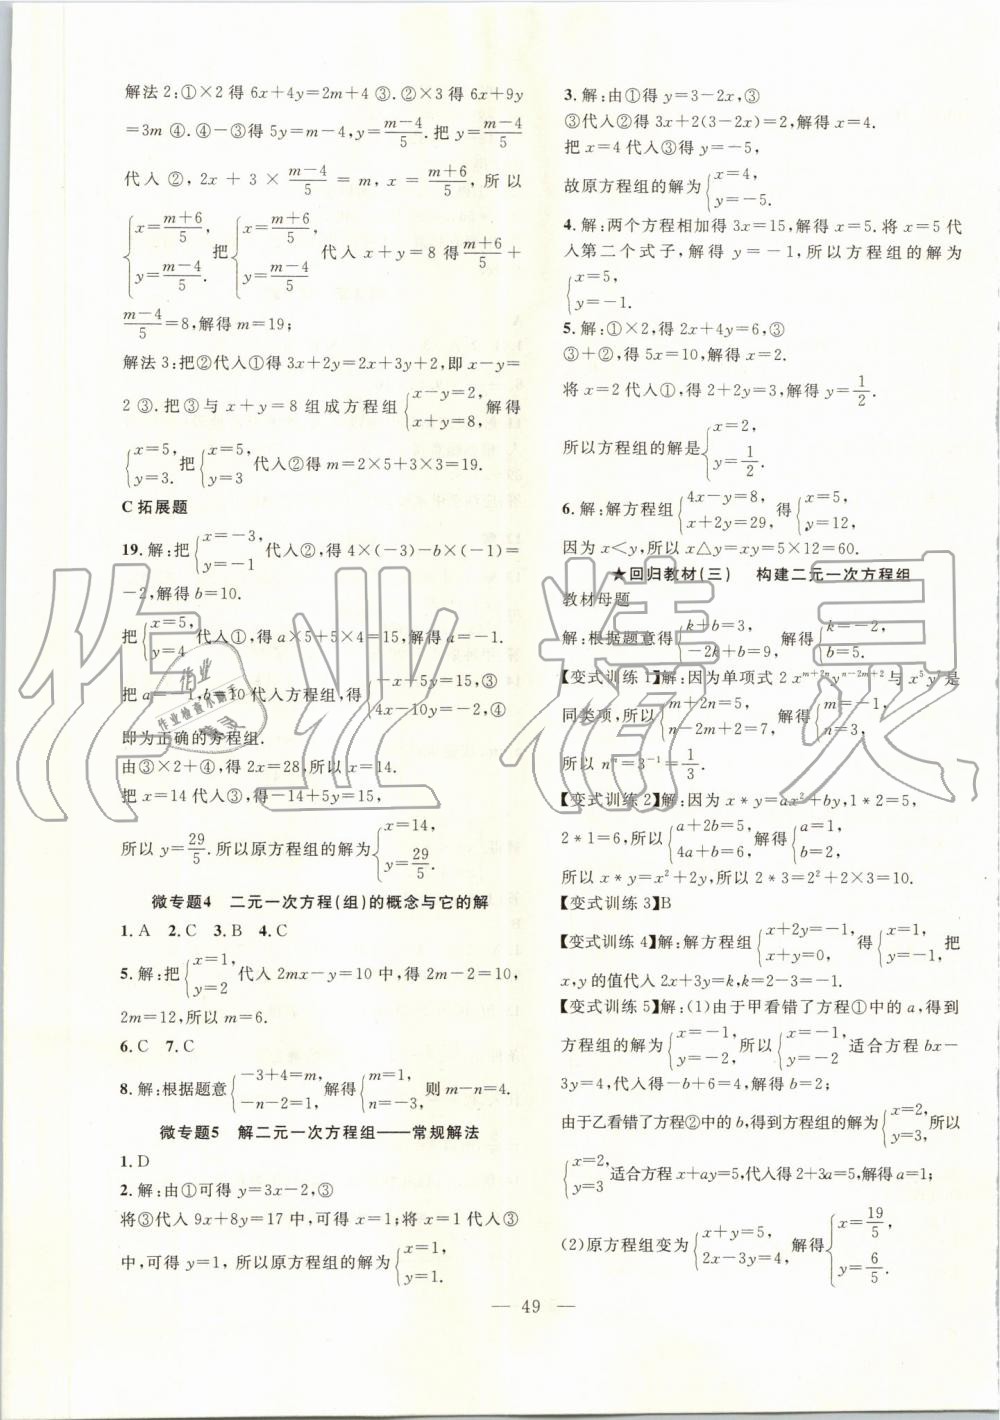 解法2:①×2得6x+4y=2m+4 ③.②×3得6x+9y
=3m ④.④-③得5y=m-4,y=(m-4)/5.把y=(m-4)/5
代入②,2x+3×(m-4)/5=m,x=(m+6)/5,所以
{x=(m+6)/5, y=(m-4)/5. 把{x=(m+6)/5, y=(m-4)/5 代入x+y=8得(m+6)/5+
(m-4)/5=8,解得m=19;
解法3:把②代入①得3x+2y=2x+3y+2,即x-y=
2 ③.把③与x+y=8组成方程组{x-y=2, x+y=8, 解得
{x=5, y=3. 把{x=5, y=3 代入②得m=2×5+3×3=19.
C拓展题
19.解:把{x=-3, y=-1 代入②,得4×(-3)-b×(-1)=
-2,解得b=10.
把{x=5, y=4 代入①,得a×5+5×4=15,解得a=-1.
把a=-1,b=10代入方程组,得{-x+5y=15,③ 4x-10y=-2,④
即为正确的方程组.
由③×2+④,得2x=28,所以x=14.
把x=14代入③,得-14+5y=15,
所以y=29/5.所以原方程组的解为{x=14, y=29/5.
微专题4 二元一次方程(组)的概念与它的解
1.A 2.C 3.B 4.C
5.解:把{x=1, y=2 代入2mx-y=10中,得2m-2=10,
2m=12,所以m=6.
6.C 7.C
8.解:根据题意{-3+4=m, -n-2=1, 解得{m=1, n=-3, 则m-n=4.
微专题5 解二元一次方程组——常规解法
1.D
2.解:由①可得y=3x-2,③
将③代入9x+8y=17中,可得x=1;将x=1代入③
中,可得y=1,所以原方程组的解为{x=1, y=1.
3.解:由①得y=3-2x,③
③代入②得3x+2(3-2x)=2,解得x=4.
把x=4代入③得y=-5,
故原方程组的解为{x=4, y=-5.
4.解:两个方程相加得3x=15,解得x=5.将x=5代
入第二个式子,解得y=-1,所以方程组的解为
{x=5, y=-1.
5.解:①×2,得2x+4y=6,③
③+②,得5x=10,解得x=2.
将x=2代入①,得2+2y=3,解得y=1/2.
所以方程组的解是{x=2, y=1/2.
6.解:解方程组{4x-y=8, x+2y=29, 得{x=5, y=12,
因为x<y,所以x△y=xy=5×12=60.
★回归教材(三) 构建二元一次方程组
教材母题
解:根据题意得{k+b=3, -2k+b=9, 解得{k=-2, b=5.
【变式训练1】解:因为单项式2x^(m+2n)y^(n-2m+2)与x^5y^7是
同类项,所以{m+2n=5, n-2m+2=7, 解得{m=-1, n=3,
所以n^m=3^(-1)=1/3.
【变式训练2】解:因为x*y=ax²+by,1*2=5,
2*1=6,所以{a+2b=5, 4a+b=6, 解得{a=1, b=2.
所以x*y=x²+2y,所以2*3=2²+2×3=10.
【变式训练3】B
【变式训练4】解:解方程组{x+2y=-1, x+y=0, 得{x=1, y=-1, 把
x,y的值代入2x+3y=k,k=2-3=-1.
【变式训练5】解:(1)由于甲看错了方程①中的a,得到
方程组的解为{x=-1, y=-2, 所以{x=-1, y=-2, 适合方程bx-
3y=4,代入得-b+6=4,解得b=2;
由于乙看错了方程②中的b,得到方程组的解为{x=2, y=3, 所以
{x=2, y=3 适合方程x+ay=5,代入得2+3a=5,解得a=1;
(2)原方程组变为{x+y=5, 2x-3y=4, 解得{x=19/5, y=6/5.
— 49 —
作业精灵
作业
作业检查小助手
精灵